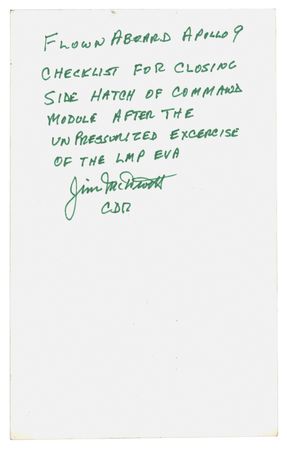 FLOWN ABOARD APOLLO 9
CHECKLIST FOR CLOSING
SIDE HATCH OF COMMAND
MODULE AFTER THE
UNPRESSURIZED EXCERCISE
OF THE LMP EVA
Jim McDivitt
CDR